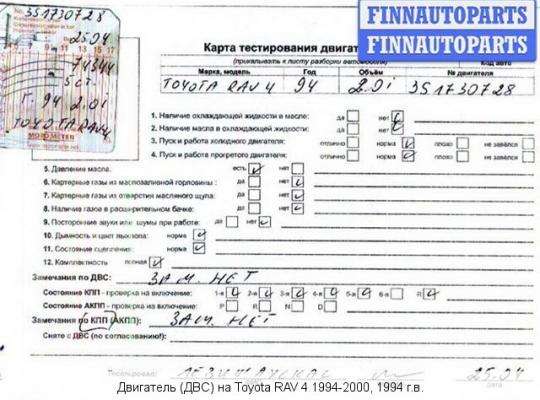 FINNAUTOPARTS
FINNAUTOPARTS
No. 3S1730728
25.04
7 9 11 13 15 17
74344
5 ст.
г. 94 2.0i
TOYOTA RAV4
Карта тестирования двигат
(прикалывать к листу разборки автомобиля)
Код авто
Марка, модель Год Объём № двигателя
TOYOTA RAV 4 94 2.0i 3S1730728
1. Наличие охлаждающей жидкости в масле: да нет
2. Наличие масла в охлаждающей жидкости: да нет
3. Пуск и работа холодного двигателя: отлично норма плохо не завёлся
4. Пуск и работа прогретого двигателя: отлично норма плохо не завёлся
5. Давление масла: есть нет
6. Картерные газы из маслозаливной горловины: да нет
7. Картерные газы из отверстия масляного щупа: да нет
8. Наличие газов в расширительном бачке: да нет
9. Посторонние звуки или шумы при работе: да нет
10. Дымность и цвет выхлопа: норма
11. Состояние сцепления: норма
12. Комплектность полная
Замечания по ДВС: ЗАМ. НЕТ
Состояние КПП - проверка на включение: 1-я 2-я 3-я 4-я 5-я 6-я R
Состояние АКПП - проверка на включение: P R N D
Замечания по КПП (АКПП): ЗАМ. НЕТ
Снято с ДВС (по согласованию!):
Тестировал: 25.04
Дата
Двигатель (ДВС) на Toyota RAV 4 1994-2000, 1994 г.в.